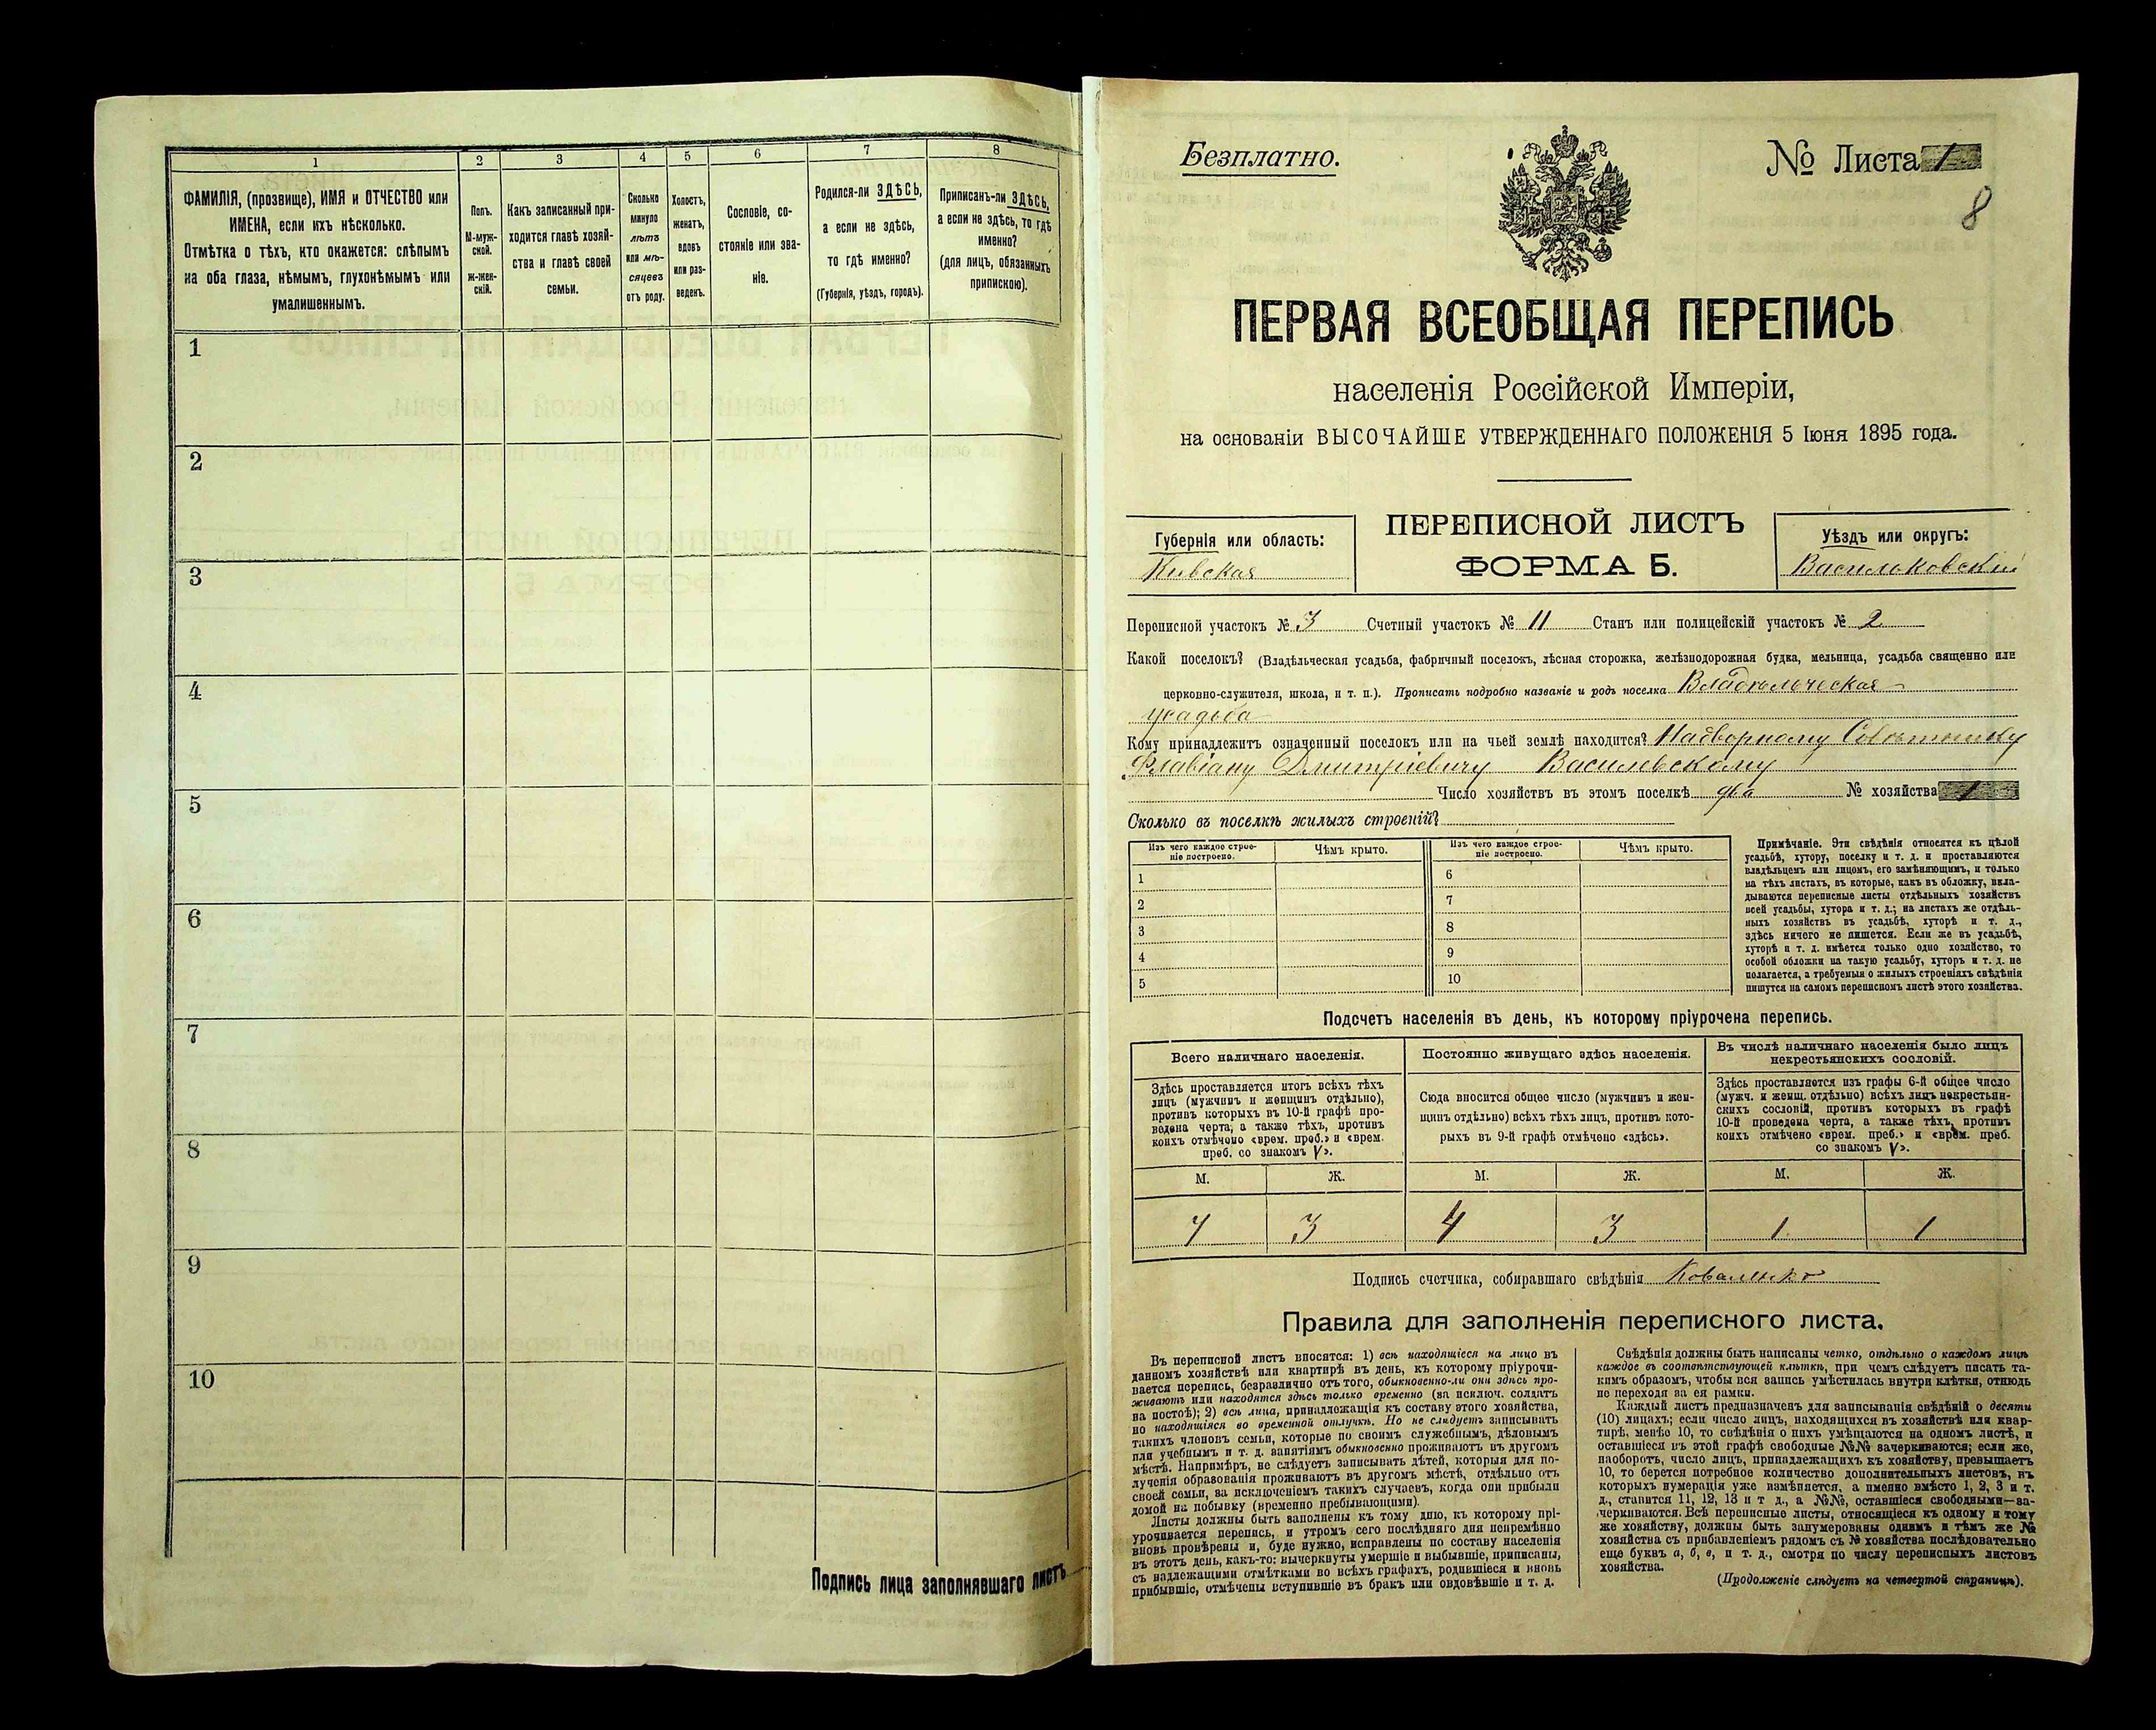 1
2
3
4
5
6
7
8
ФАМИЛІЯ, (прозвище), ИМЯ и ОТЧЕСТВО или
ИМЕНА, если ихъ нѣсколько.
Отмѣтка о тѣхъ, кто окажется: слѣпымъ
на оба глаза, нѣмымъ, глухонѣмымъ или
умалишеннымъ.
Полъ.
М-муж-
ской.
ж-жен-
скій.
Какъ записанный при-
ходится главѣ хозяй-
ства и главѣ своей
семьи.
Сколько
минуло
лѣтъ
или мѣ-
сяцевъ
отъ роду.
Холостъ,
женатъ,
вдовъ
или раз-
веденъ.
Сословіе, со-
стояніе или зва-
ніе.
Родился-ли ЗДѢСЬ,
а если не здѣсь,
то гдѣ именно?
(Губернія, уѣздъ, городъ).
Приписанъ-ли ЗДѢСЬ,
а если не здѣсь, то гдѣ
именно?
(для лицъ, обязанныхъ
припискою).
1
2
3
4
5
6
7
8
9
10
Подпись лица заполнявшаго листъ
Безплатно.
№ Листа 1
8
ПЕРВАЯ ВСЕОБЩАЯ ПЕРЕПИСЬ
населенія Россійской Имперіи,
на основаніи ВЫСОЧАЙШЕ УТВЕРЖДЕННАГО ПОЛОЖЕНІЯ 5 Іюня 1895 года.
Губернія или область:
Кивская
ПЕРЕПИСНОЙ ЛИСТЪ
ФОРМА Б.
Уѣздъ или округъ:
Васильковскій
Переписной участокъ № 3 Счетный участокъ № 11 Станъ или полицейскій участокъ № 2
Какой поселокъ? (Владѣльческая усадьба, фабричный поселокъ, лѣсная сторожка, желѣзнодорожная будка, мельница, усадьба священно или
церковно-служителя, школа, и т. п.). Прописать подробно названіе и родъ поселка Владѣльческая
усадьба
Кому принадлежитъ означенный поселокъ или на чьей землѣ находится? Надворному Совѣтнику
Флавіану Дмитріевичу Василевскому
Число хозяйствъ въ этомъ поселкѣ два № хозяйства 1
Сколько въ поселкѣ жилыхъ строеній?
Изъ чего каждое строе-
ніе построено.
Чѣмъ крыто.
Изъ чего каждое строе-
ніе построено.
Чѣмъ крыто.
1
2
3
4
5
6
7
8
9
10
Примѣчаніе. Эти свѣдѣнія относятся къ цѣлой
усадьбѣ, хутору, поселку и т. д. и проставляются
владѣльцемъ или лицомъ, его замѣняющимъ, и только
на тѣхъ листахъ, въ которые, какъ въ обложку, вкла-
дываются переписные листы отдѣльныхъ хозяйствъ
всей усадьбы, хутора и т. д.; на листахъ же отдѣль-
ныхъ хозяйствъ въ усадьбѣ, хуторѣ и т. д.,
здѣсь ничего не пишется. Если же въ усадьбѣ,
хуторѣ и т. д. имѣется только одно хозяйство, то
особой обложки на такую усадьбу, хуторъ и т. д. не
полагается, а требуемыя о жилыхъ строеніяхъ свѣдѣнія
пишутся на самомъ переписномъ листѣ этого хозяйства.
Подсчетъ населенія въ день, къ которому пріурочена перепись.
Всего наличнаго населенія.
Здѣсь проставляется итогъ всѣхъ тѣхъ
лицъ (мужчинъ и женщинъ отдѣльно),
противъ которыхъ въ 10-й графѣ про-
ведена черта, а также тѣхъ, противъ
коихъ отмѣчено «врем. преб.» и «врем.
преб. со знакомъ V».
Постоянно живущаго здѣсь населенія.
Сюда вносится общее число (мужчинъ и жен-
щинъ отдѣльно) всѣхъ тѣхъ лицъ, противъ кото-
рыхъ въ 9-й графѣ отмѣчено «здѣсь».
Въ числѣ наличнаго населенія было лицъ
некрестьянскихъ сословій.
Здѣсь проставляется изъ графы 6-й общее число
(мужч. и женщ. отдѣльно) всѣхъ лицъ некрестьян-
скихъ сословій, противъ которыхъ въ графѣ
10-й проведена черта, а также тѣхъ, противъ
коихъ отмѣчено «врем. преб.» и «врем. преб.
со знакомъ V».
М. Ж. М. Ж. М. Ж.
7 3 4 3 1 1
Подпись счетчика, собиравшаго свѣдѣнія Коваленко
Правила для заполненія переписного листа.
Въ переписной листъ вносятся: 1) всѣ находящіеся на лицо въ
данномъ хозяйствѣ или квартирѣ въ день, къ которому пріурочи-
вается перепись, безразлично отъ того, обыкновенно-ли они здѣсь про-
живаютъ или находятся здѣсь только временно (за исключ. солдатъ
на постоѣ); 2) всѣ лица, принадлежащія къ составу этого хозяйства,
но находящіяся во временной отлучкѣ. Но не слѣдуетъ записывать
такихъ членовъ семьи, которые по своимъ служебнымъ, дѣловымъ
или учебнымъ и т. д. занятіямъ обыкновенно проживаютъ въ другомъ
мѣстѣ. Напримѣръ, не слѣдуетъ записывать дѣтей, которыя для по-
лученія образованія проживаютъ въ другомъ мѣстѣ, отдѣльно отъ
своей семьи, за исключеніемъ такихъ случаевъ, когда они прибыли
домой на побывку (временно пребывающими).
Листы должны быть заполнены къ тому дню, къ которому прі-
урочивается перепись, и утромъ сего послѣдняго дня непремѣнно
вновь провѣрены и, буде нужно, исправлены по составу населенія
въ этотъ день, какъ-то: вычеркнуты умершіе и выбывшіе, приписаны,
съ надлежащими отмѣтками во всѣхъ графахъ, родившіеся и вновь
прибывшіе, отмѣчены вступившіе въ бракъ или овдовѣвшіе и т. д.
Свѣдѣнія должны быть написаны четко, отдѣльно о каждомъ лицѣ
каждое въ соотвѣтствующей клѣткѣ, при чемъ слѣдуетъ писать та-
кимъ образомъ, чтобы вся запись умѣстилась внутри клѣтки, отнюдь
не переходя за ея рамки.
Каждый листъ предназначенъ для записыванія свѣдѣній о десяти
(10) лицахъ; если число лицъ, находящихся въ хозяйствѣ или квар-
тирѣ, менѣе 10, то свѣдѣнія о нихъ умѣщаются на одномъ листѣ, и
оставшіеся въ этой графѣ свободные №№ зачеркиваются; если же,
наоборотъ, число лицъ, принадлежащихъ къ хозяйству, превышаетъ
10, то берется потребное количество дополнительныхъ листовъ, въ
которыхъ нумерація уже измѣняется, а именно вмѣсто 1, 2, 3 и т.
д., ставится 11, 12, 13 и т д., а №№, оставшіеся свободными—за-
черкиваются. Всѣ переписные листы, относящіеся къ одному и тому
же хозяйству, должны быть занумерованы однимъ и тѣмъ же №
хозяйства съ прибавленіемъ рядомъ съ № хозяйства послѣдовательно
еще буквъ а, б, в, и т. д., смотря по числу переписныхъ листовъ
хозяйства.
(Продолженіе слѣдуетъ на четвертой страницѣ).